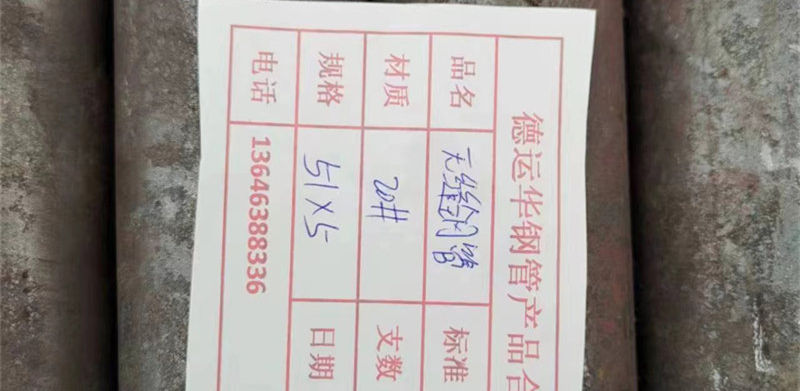 德运华钢管产品合
品名 无缝钢管 标准
材质 20# 支数
规格 51×5 日期
电话 13646388336